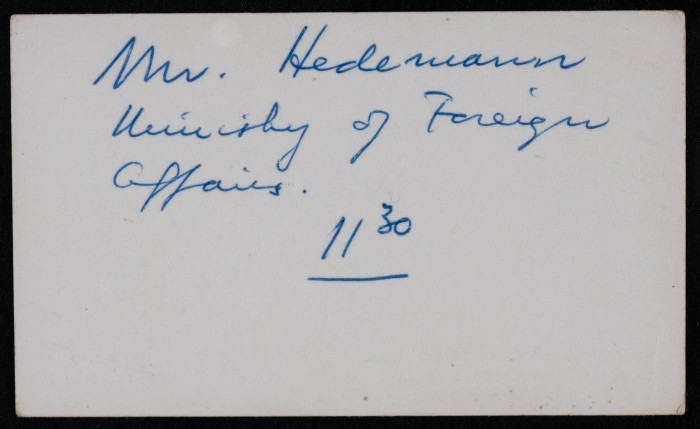 Mr. Hedemann
Ministry of Foreign
Affairs.
11 30